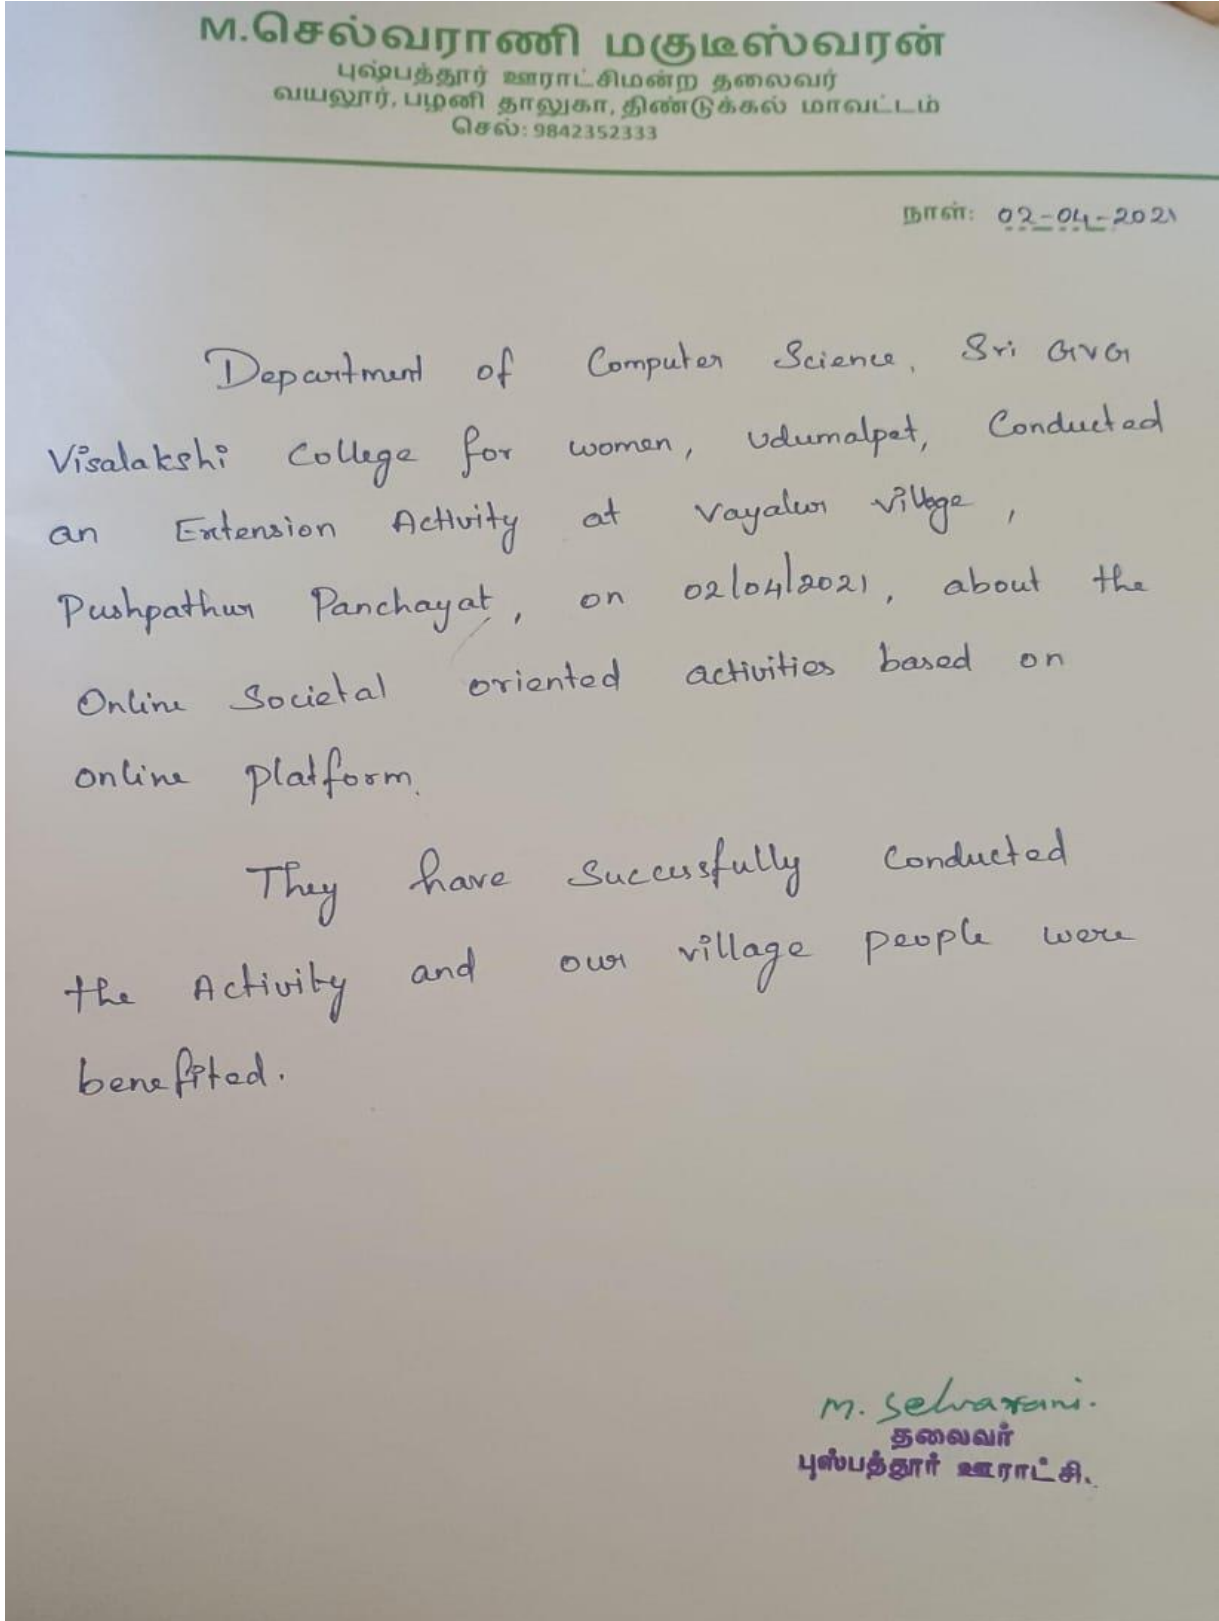 M.செல்வராணி மகுடீஸ்வரன்
புஷ்பத்தூர் ஊராட்சிமன்ற தலைவர்
வயலூர், பழனி தாலுகா, திண்டுக்கல் மாவட்டம்
செல்: 9842352333
நாள்: 02-04-2021
Department of Computer Science, Sri GVG
Visalakshi College for women, Udumalpet, Conducted
an Extension Activity at Vayalur village,
Pushpathur Panchayat, on 02/04/2021, about the
Online Societal oriented activities based on
online platform.
They have Successfully Conducted
the Activity and our village people were
benefited.
M. Selvarani.
தலைவர்
புஸ்பத்தூர் ஊராட்சி.